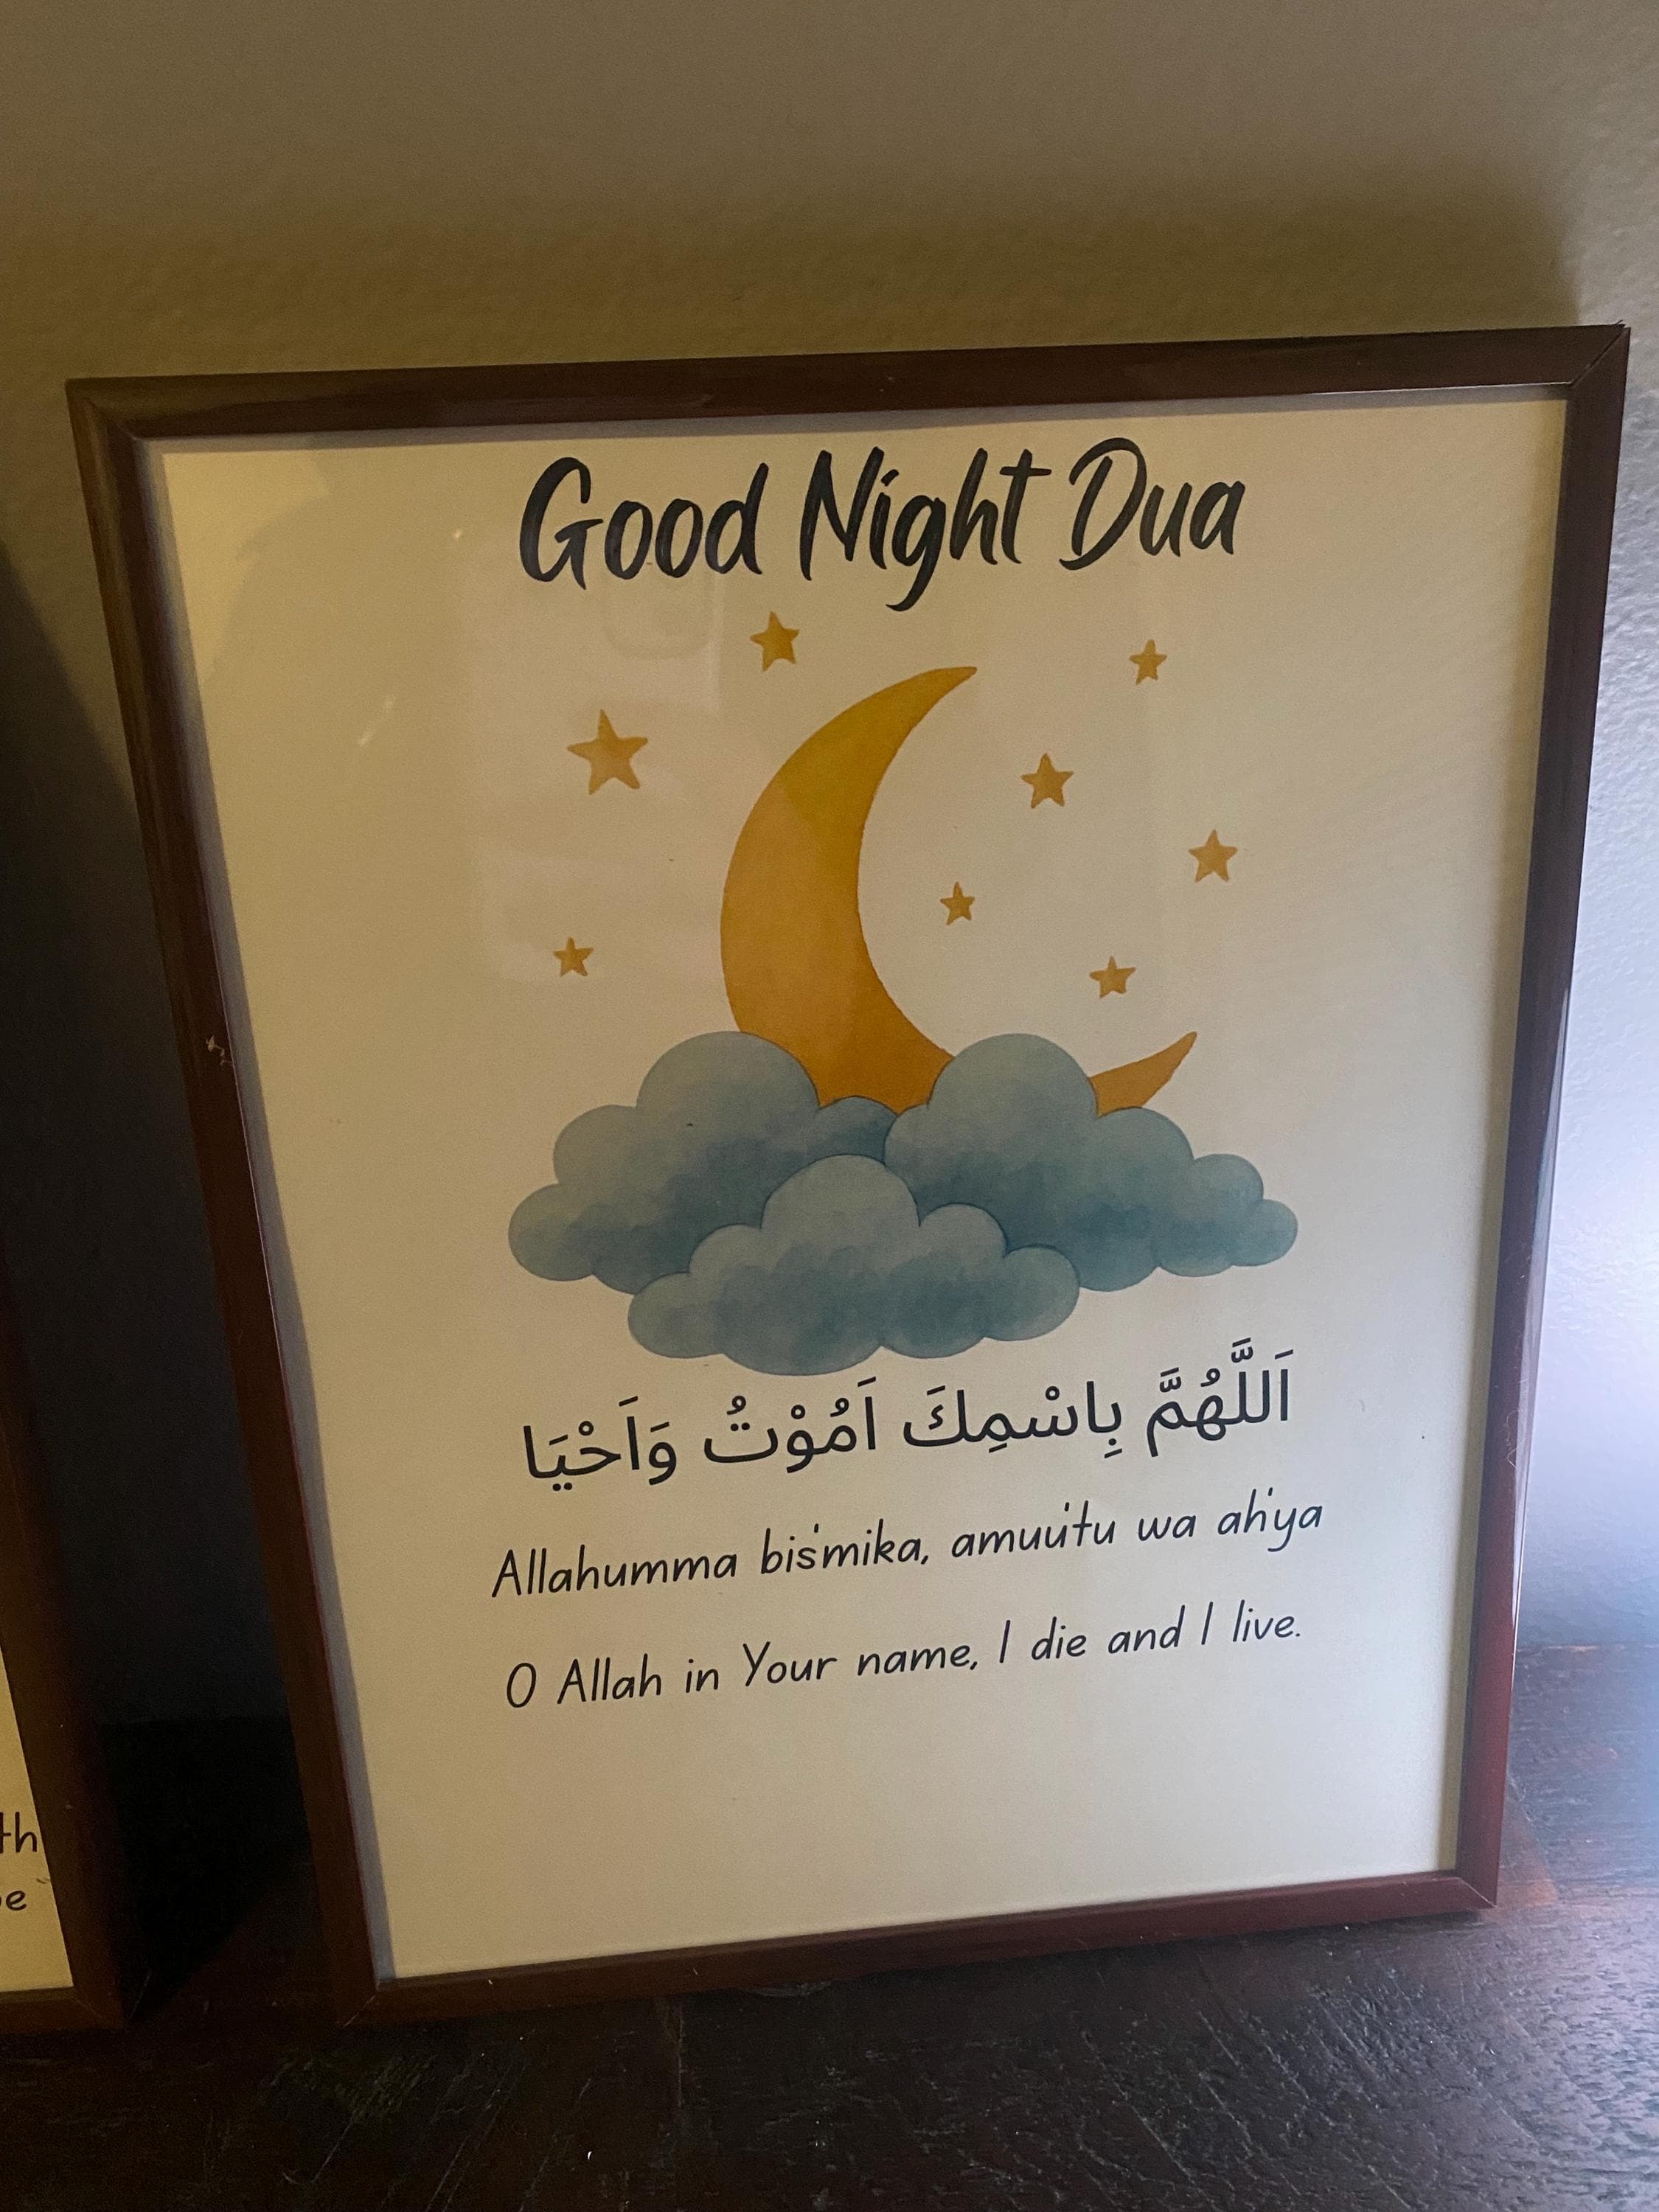 Good Night Dua
اَللَّهُمَّ بِاسْمِكَ اَمُوْتُ وَاَحْيَا
Allahumma bis'mika, amuu'tu wa ah'ya
O Allah in Your name, I die and I live.
th